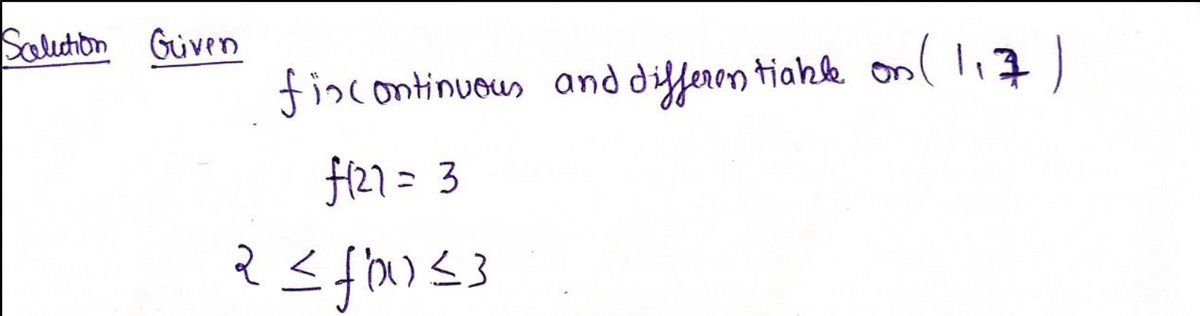 Solution Given
f is continuous and differentiable on (1,7)
f(2) = 3
2 ≤ f'(x) ≤ 3